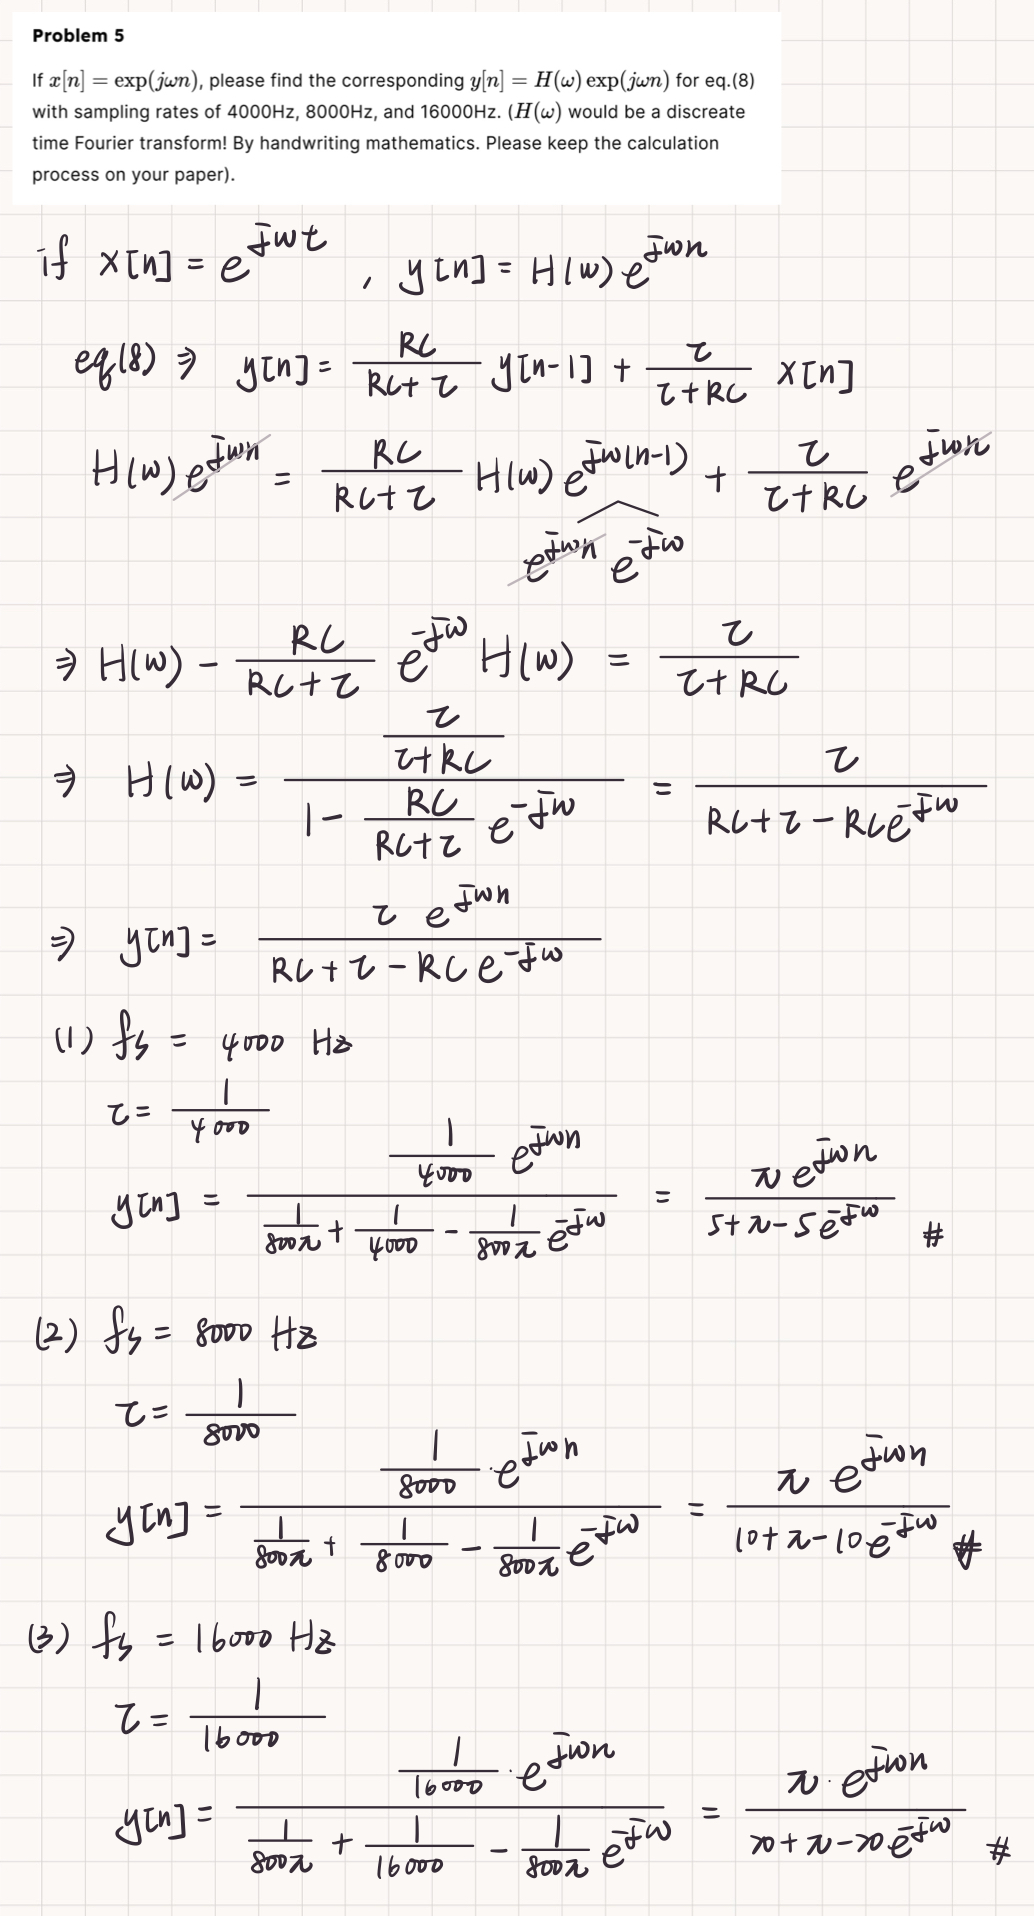 Problem 5
If x[n] = exp(jωn), please find the corresponding y[n] = H(ω) exp(jωn) for eq.(8)
with sampling rates of 4000Hz, 8000Hz, and 16000Hz. (H(ω) would be a discreate
time Fourier transform! By handwriting mathematics. Please keep the calculation
process on your paper).
if x[n] = e^{jωt} , y[n] = H(ω) e^{jωn}
eq(8) ⇒ y[n] = \frac{RC}{RC+τ} y[n-1] + \frac{τ}{τ+RC} x[n]
H(ω) e^{jωn} = \frac{RC}{RC+τ} H(ω) e^{jω(n-1)} + \frac{τ}{τ+RC} e^{jωn}
e^{jωn} e^{-jω}
⇒ H(ω) - \frac{RC}{RC+τ} e^{-jω} H(ω) = \frac{τ}{τ+RC}
⇒ H(ω) = \frac{\frac{τ}{τ+RC}}{1 - \frac{RC}{RC+τ} e^{-jω}} = \frac{τ}{RC+τ-RCe^{-jω}}
⇒ y[n] = \frac{τ e^{jωn}}{RC+τ-RC e^{-jω}}
(1) fs = 4000 Hz
τ = \frac{1}{4000}
y[n] = \frac{\frac{1}{4000} e^{jωn}}{\frac{1}{800π} + \frac{1}{4000} - \frac{1}{800π} e^{-jω}} = \frac{π e^{jωn}}{5+π-5e^{-jω}} #
(2) fs = 8000 Hz
τ = \frac{1}{8000}
y[n] = \frac{\frac{1}{8000} · e^{jωn}}{\frac{1}{800π} + \frac{1}{8000} - \frac{1}{800π} e^{-jω}} = \frac{π e^{jωn}}{10+π-10e^{-jω}} #
(3) fs = 16000 Hz
τ = \frac{1}{16000}
y[n] = \frac{\frac{1}{16000} · e^{jωn}}{\frac{1}{800π} + \frac{1}{16000} - \frac{1}{800π} e^{-jω}} = \frac{π · e^{jωn}}{20+π-20e^{-jω}} #